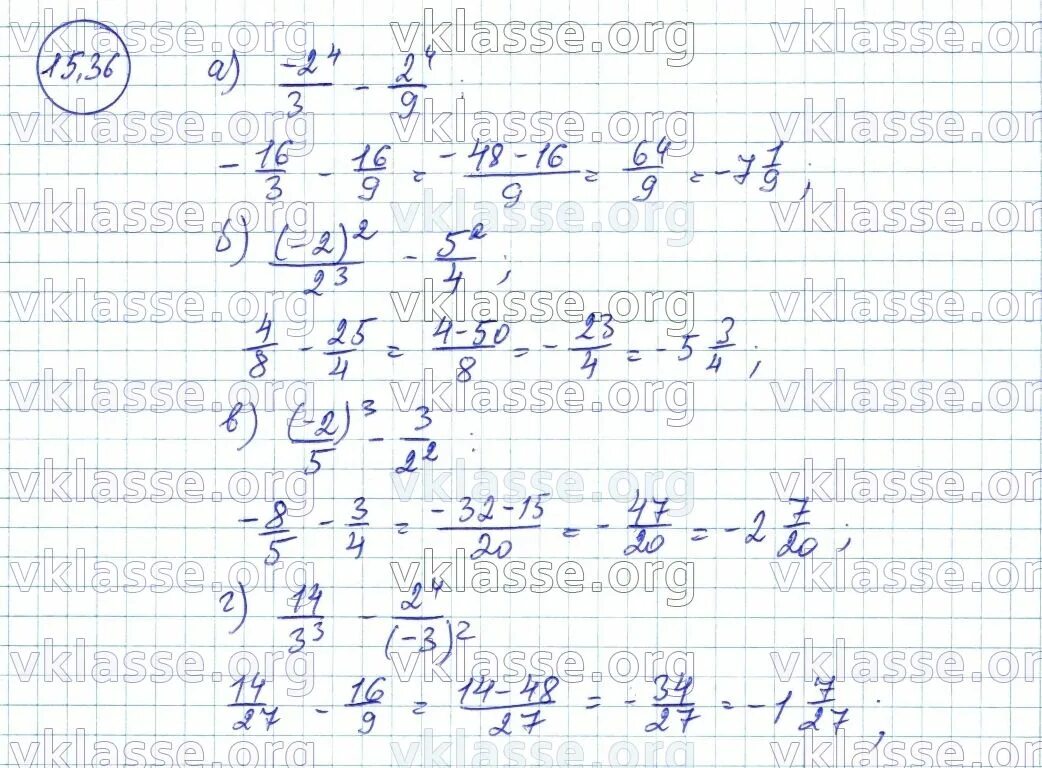 15,36 а) -2⁴/3 - 2⁴/9 ;
- 16/3 - 16/9 = - 48 - 16/9 = 64/9 = -7 1/9 ;
б) (-2)²/2³ - 5²/4 ;
4/8 - 25/4 = 4-50/8 = - 23/4 = -5 3/4 ;
в) (-2)³/5 - 3/2² :
-8/5 - 3/4 = -32-15/20 = - 47/20 = -2 7/20 ;
г) 14/3³ - 2⁴/(-3)²
14/27 - 16/9 = 14-48/27 = - 34/27 = -1 7/27 ;
vklasse.org vklasse.org vklasse.or
vklasse.org vklasse.org vklasse.or
vklasse.org vklasse.org vklasse.or
vklasse.org vklasse.org vklasse.or
vklasse.org vklasse.org vklasse.or
vklasse.org vklasse.org vklasse.or
vklasse.org vklasse.org vklasse.or
vklasse.org vklasse.org vklasse.or
vklasse.org vklasse.org vklasse.or